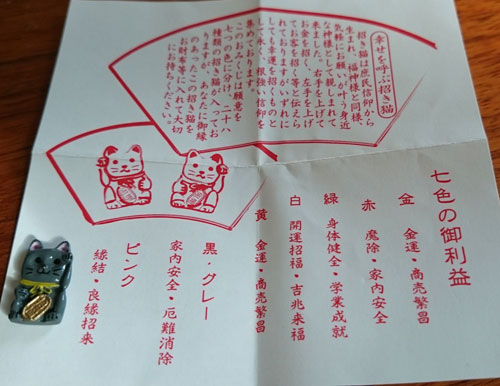 幸せを呼ぶ招き猫
招き猫は庶民信仰から
生まれ、福神様と同様、
気軽にお願いが叶う身近
な神様として親しまれて
来ました。右手を上げて
お金を招き、左手を上げ
てお客を招く等と伝えら
れておりますがいずれに
しても幸運を招くものと
して永く、根強い信仰を
集めております。
このおみくじは願意を
七つの色に分け、二十八
種類の招き猫が入ってお
りますが、あなたに御縁
のあったこの招き猫を
お財布等に入れて大切
にお持ちください。
七色の御利益
金 金運・商売繁昌
赤 魔除・家内安全
緑 身体健全・学業成就
白 開運招福・吉兆来福
黄 金運・商売繁昌
黒・グレー
家内安全・厄難消除
ピンク
縁結・良縁招来